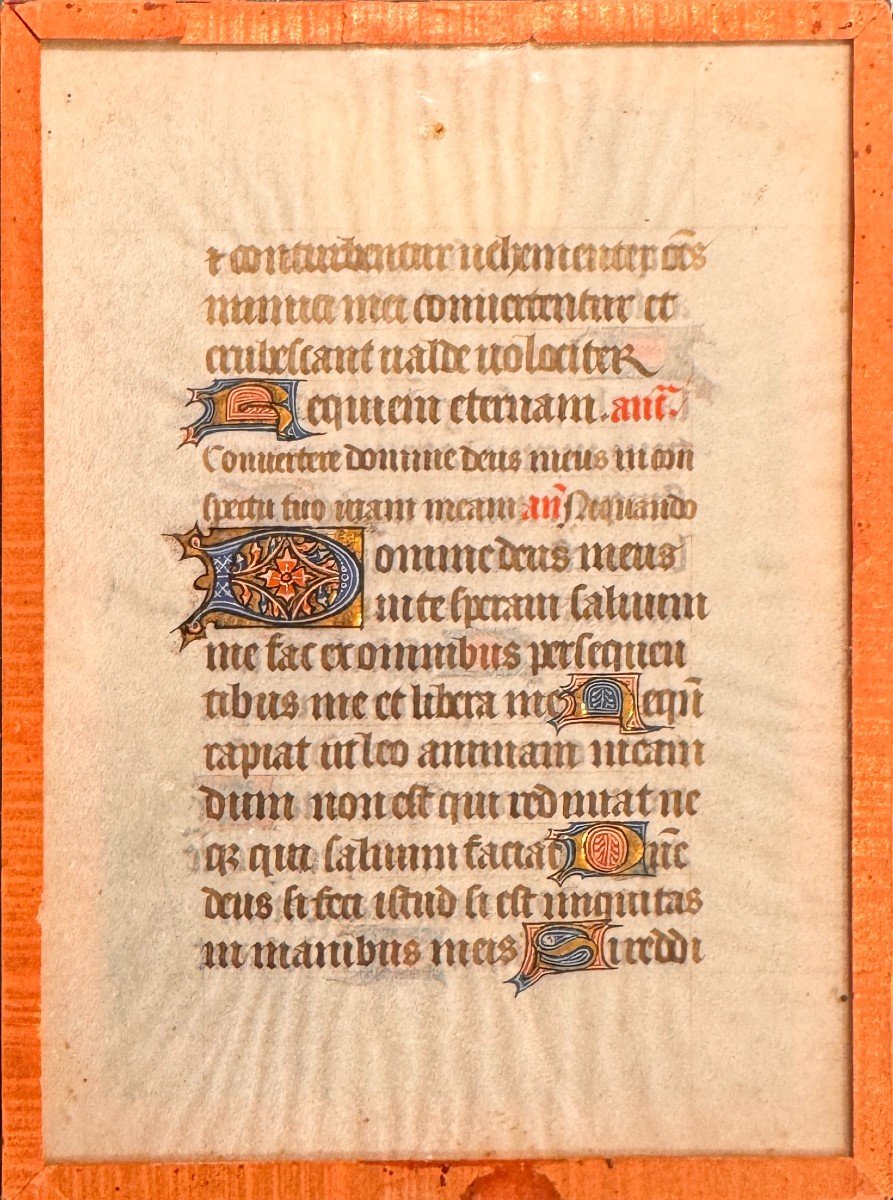 ⁊ conturbentur uehementer om̄s
inimici mei conuertentur et
erubescant ualde uelociter
Requiem eternam. ant̄.
Conuertere domine deus meus in con
spectu tuo uiam meam an̄ Nequando
Domine deus meus
in te speraui saluum
me fac ex omnibus persequen
tibus me et libera me Nequn̄
rapiat ut leo animam meam
dum non est qui redimat ne
qꝫ qui saluum faciat Dn̄e
deus si feci istud si est iniquitas
in manibus meis Si reddi